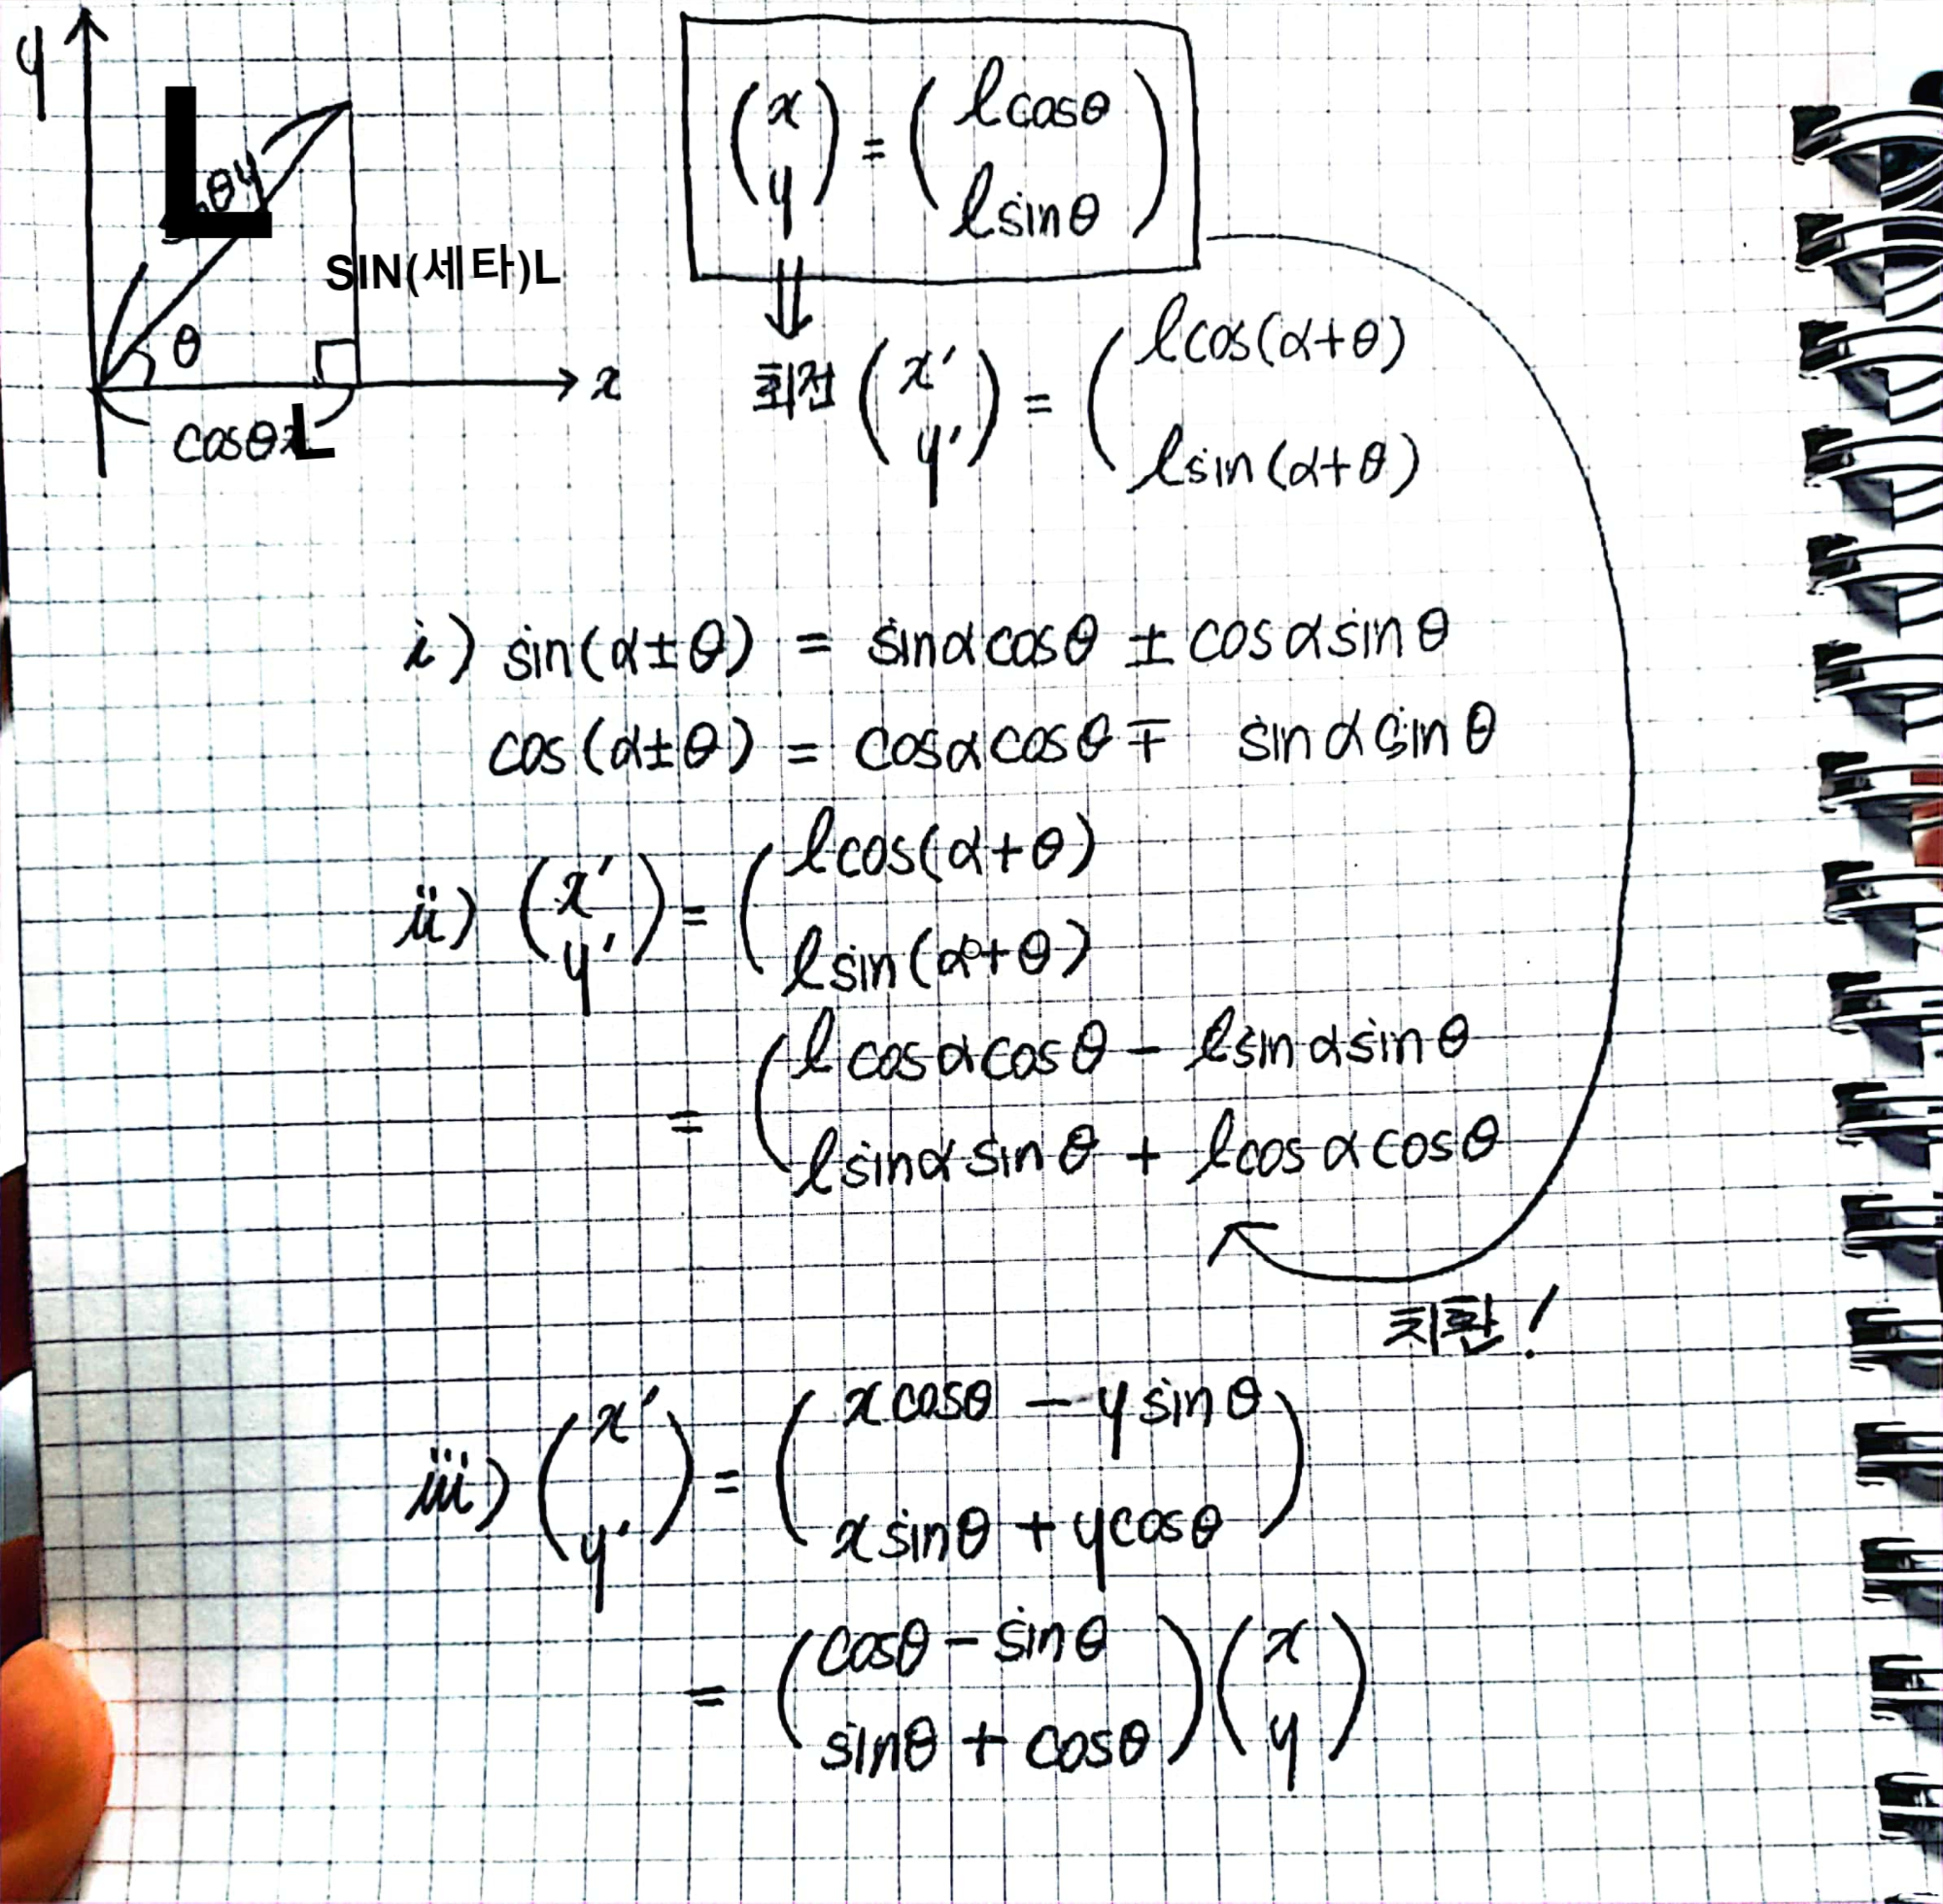 y
L
SIN(세타)L
θ
x
cosθ L
(x y) = (lcosθ lsinθ)
회전 (x′ y′) = (lcos(α+θ) lsin(α+θ)
i) sin(α±θ) = sinαcosθ ± cosαsinθ
cos(α±θ) = cosαcosθ ∓ sinαsinθ
ii) (x′ y′) = (lcos(α+θ) lsin(α+θ)
= (lcosαcosθ - lsinαsinθ
lsinαsinθ + lcosαcosθ
치환!
iii) (x′ y′) = (xcosθ - ysinθ
xsinθ + ycosθ)
= (cosθ - sinθ
sinθ + cosθ) (x y)